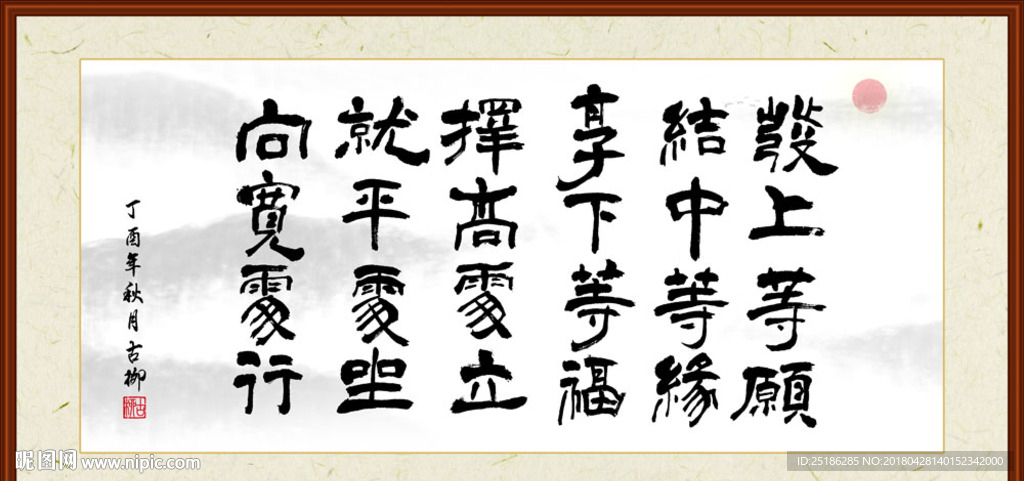 發上等願
結中等緣
享下等福
擇高處立
就平處坐
向寬處行
丁酉年秋月古柳
古柳
昵图网 www.nipic.com
ID:25186285 NO:20180428140152342000